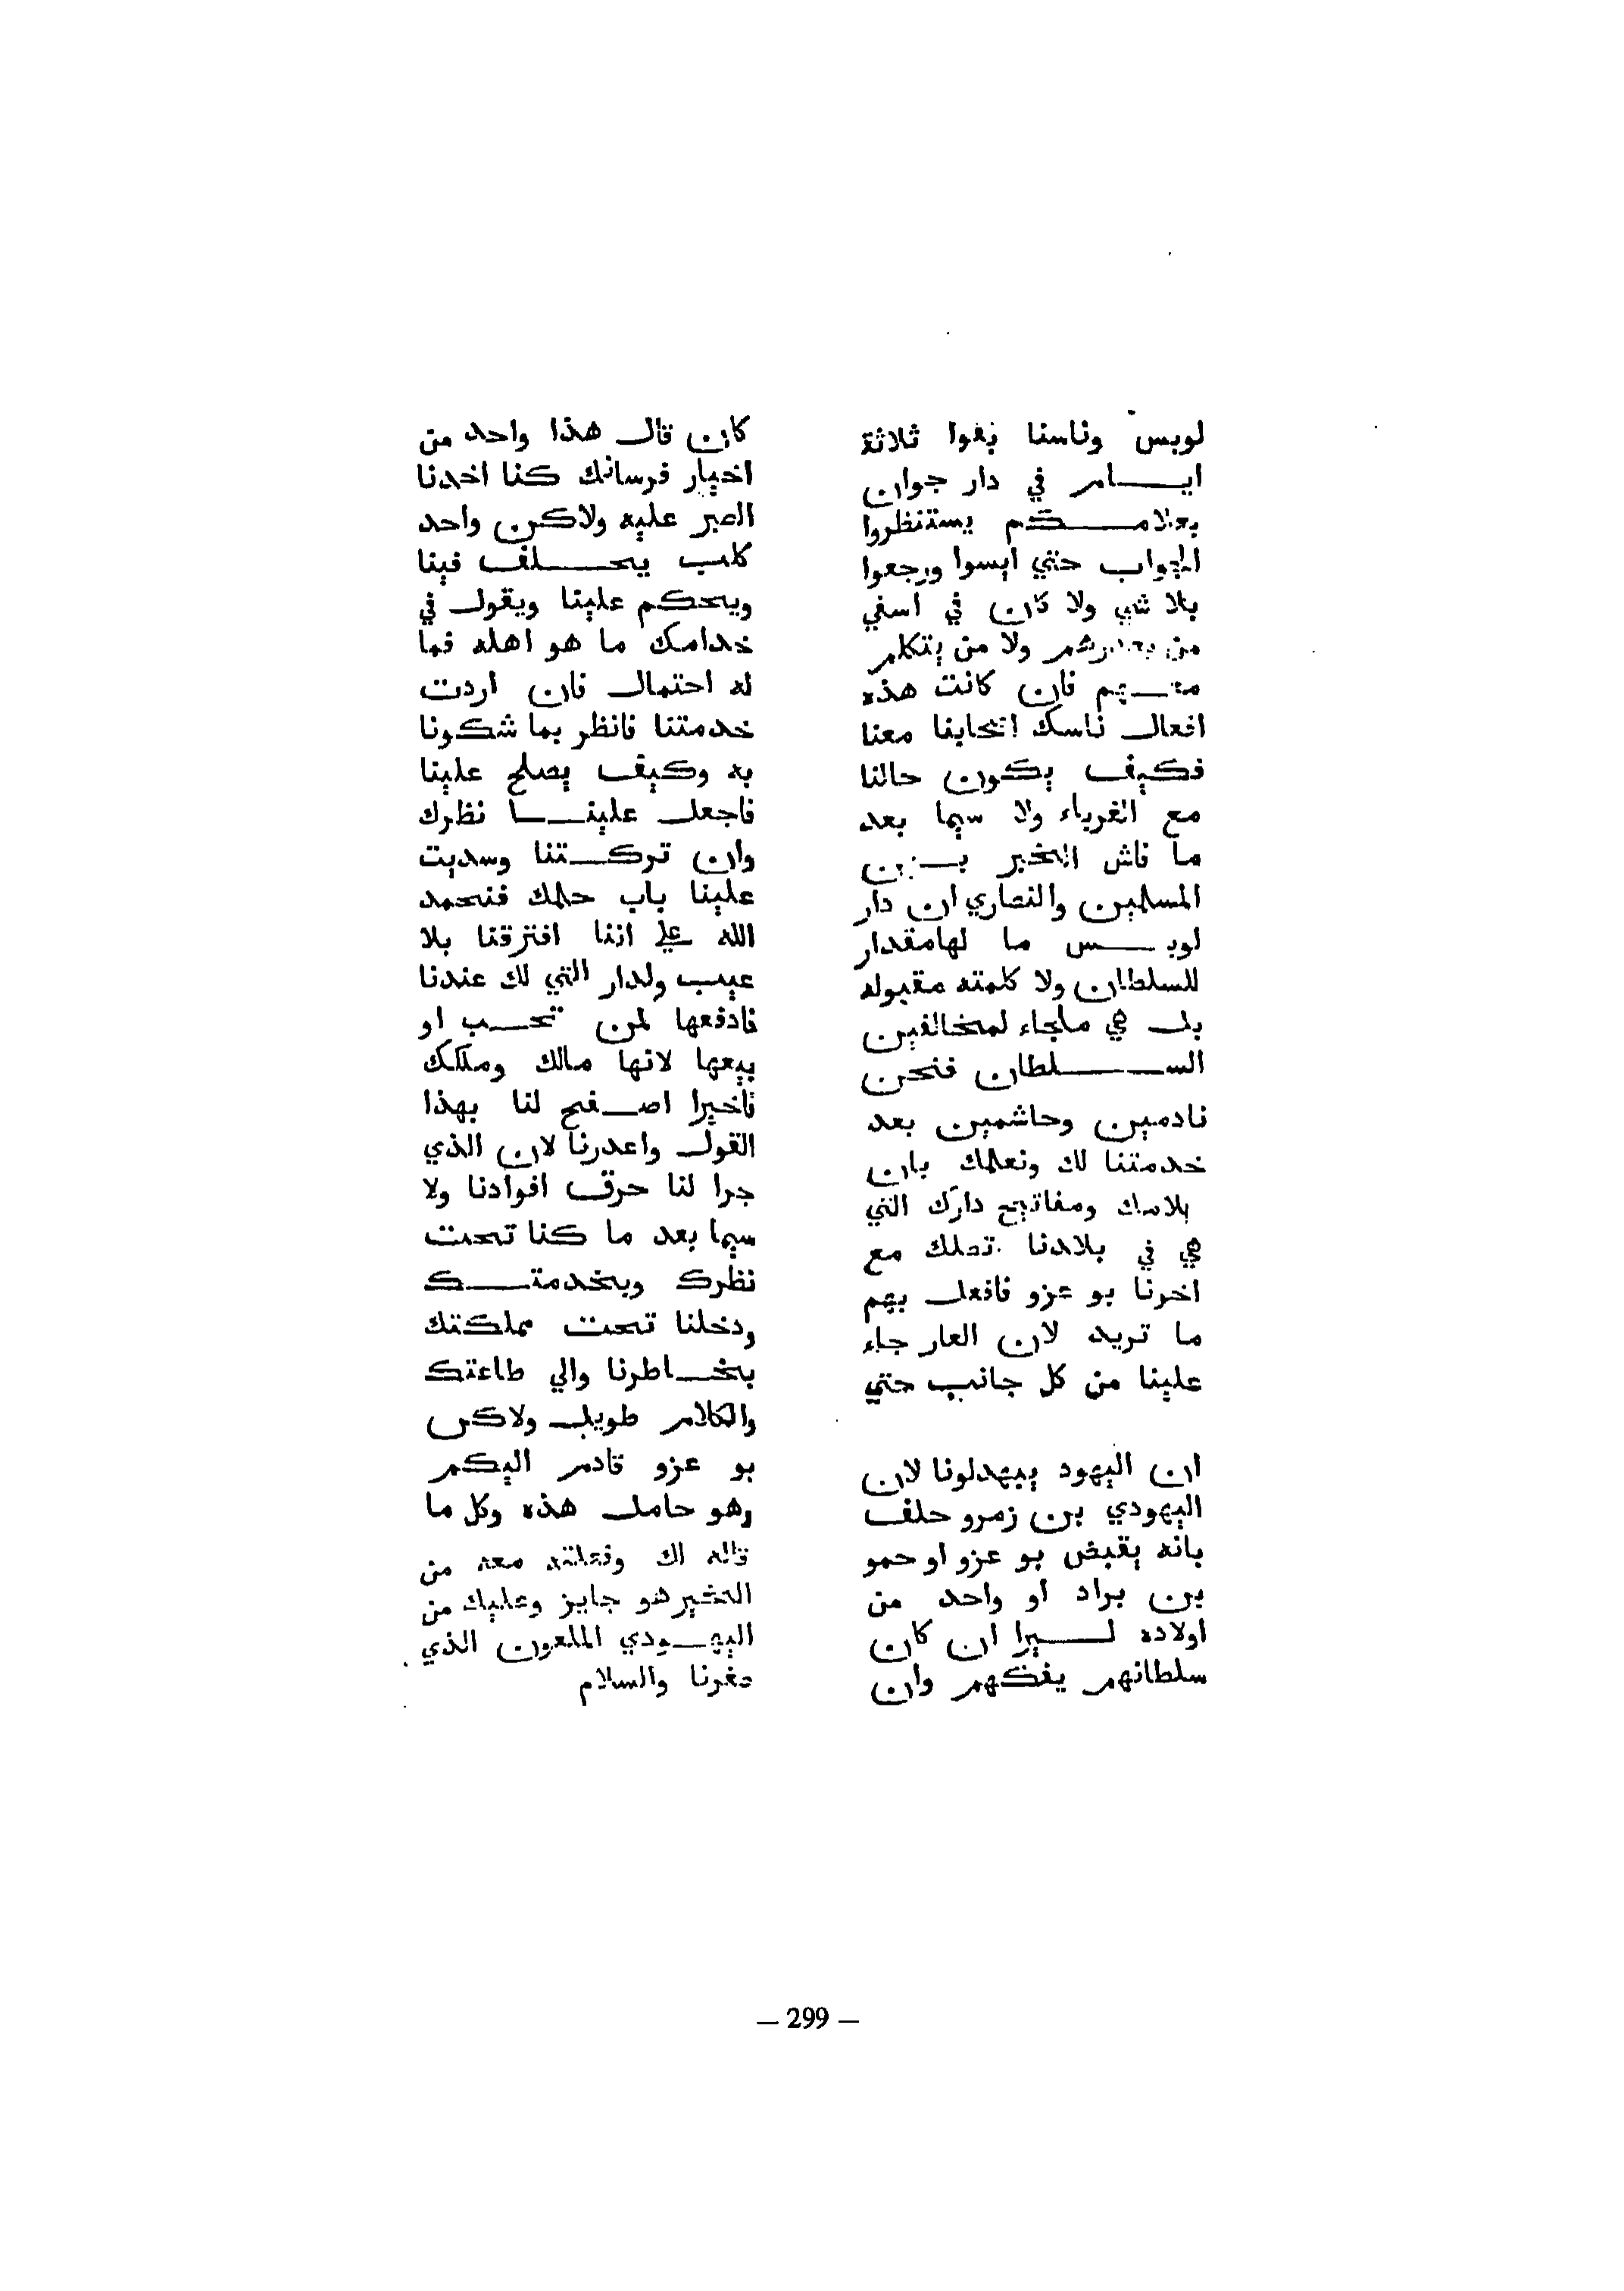 لويس وناسنا بقوا ثلاثة
ايام في دار جوان
بعلامكم يستنظروا
الجواب حتي ايسوا ورجعوا
بلا شي ولا كان في اسفي
من ولا من يتكلم
معهم فان كانت هذه
افعال ناسك اتحابنا معنا
فكيف يكون حالنا
مع الغرباء ولا سيما بعد
ما فاش الخبر بين
المسلمين والنصاري ان دار
لويس ما لها مقدار
للسلطان ولا كلمته مقبوله
بل هي ملجاء لمخالفين
السلطان فنحن
نادمين وحاشمين بعد
خدمتنا لك ونعلمك بان
بلاصك ومفاتيح دارك التي
هي في بلادنا تصلك مع
اخرنا بو عزو فافعل بهم
ما تريد لان العار جاء
علينا من كل جانب حتي
ان اليهود يبهدلونا لان
اليهودي بن زمرو حلف
بانه يقبض بو عزو او حمو
بن براد او واحد من
اولاده ليرا ان كان
سلطانهم يفكهم وان
كان قال هذا واحد من
اخيار فرسانك كنا اخدنا
الصبر عليه ولاكن واحد
كلب يحلف فينا
ويحكم علينا ويقول في
خدامك ما هو اهله فما
له احتمال فان اردت
خدمتنا فانظر بما شكونا
به وكيف يصلح علينا
فاجعل علينا نظرك
وان تركتنا وسديت
علينا باب حلمك فنحمد
الله علي اننا افترقنا بلا
عيب ولدار التي لك عندنا
فادفعها لمن تحب او
بيعها لانها مالك وملكك
فاخيرا اصفح لنا بهذا
القول واعدرنا لان الذي
جرا لنا حرق افوادنا ولا
سيما بعد ما كنا تحت
نظرك وبخدمتك
ودخلنا تحت مملكتك
بخاطرنا والي طاعتك
والكلام طويل ولاكن
بو عزو قادم اليكم
وهو حامل هذه وكل ما
قاله لك وفعلته معه من
الخير هو جايز وعليك من
اليهودي الملعون الذي
صغرنا والسلام
— 299 —